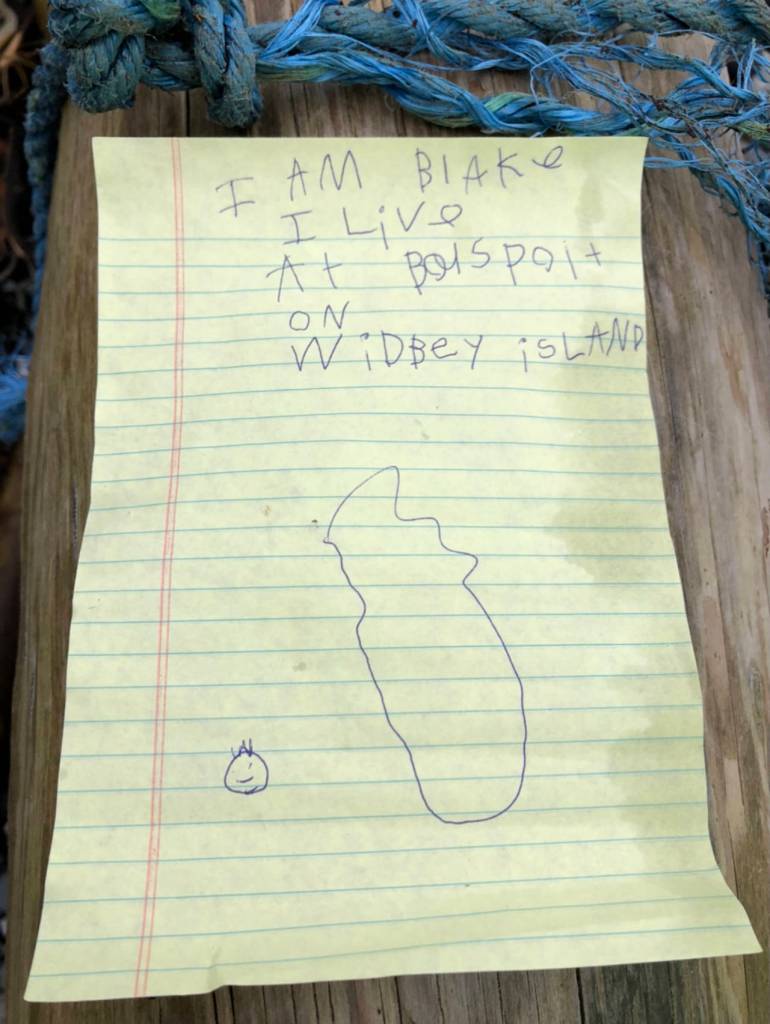 I AM BlAKe
I LiVe
At BoisPoit
ON
WiDBey iSLAND